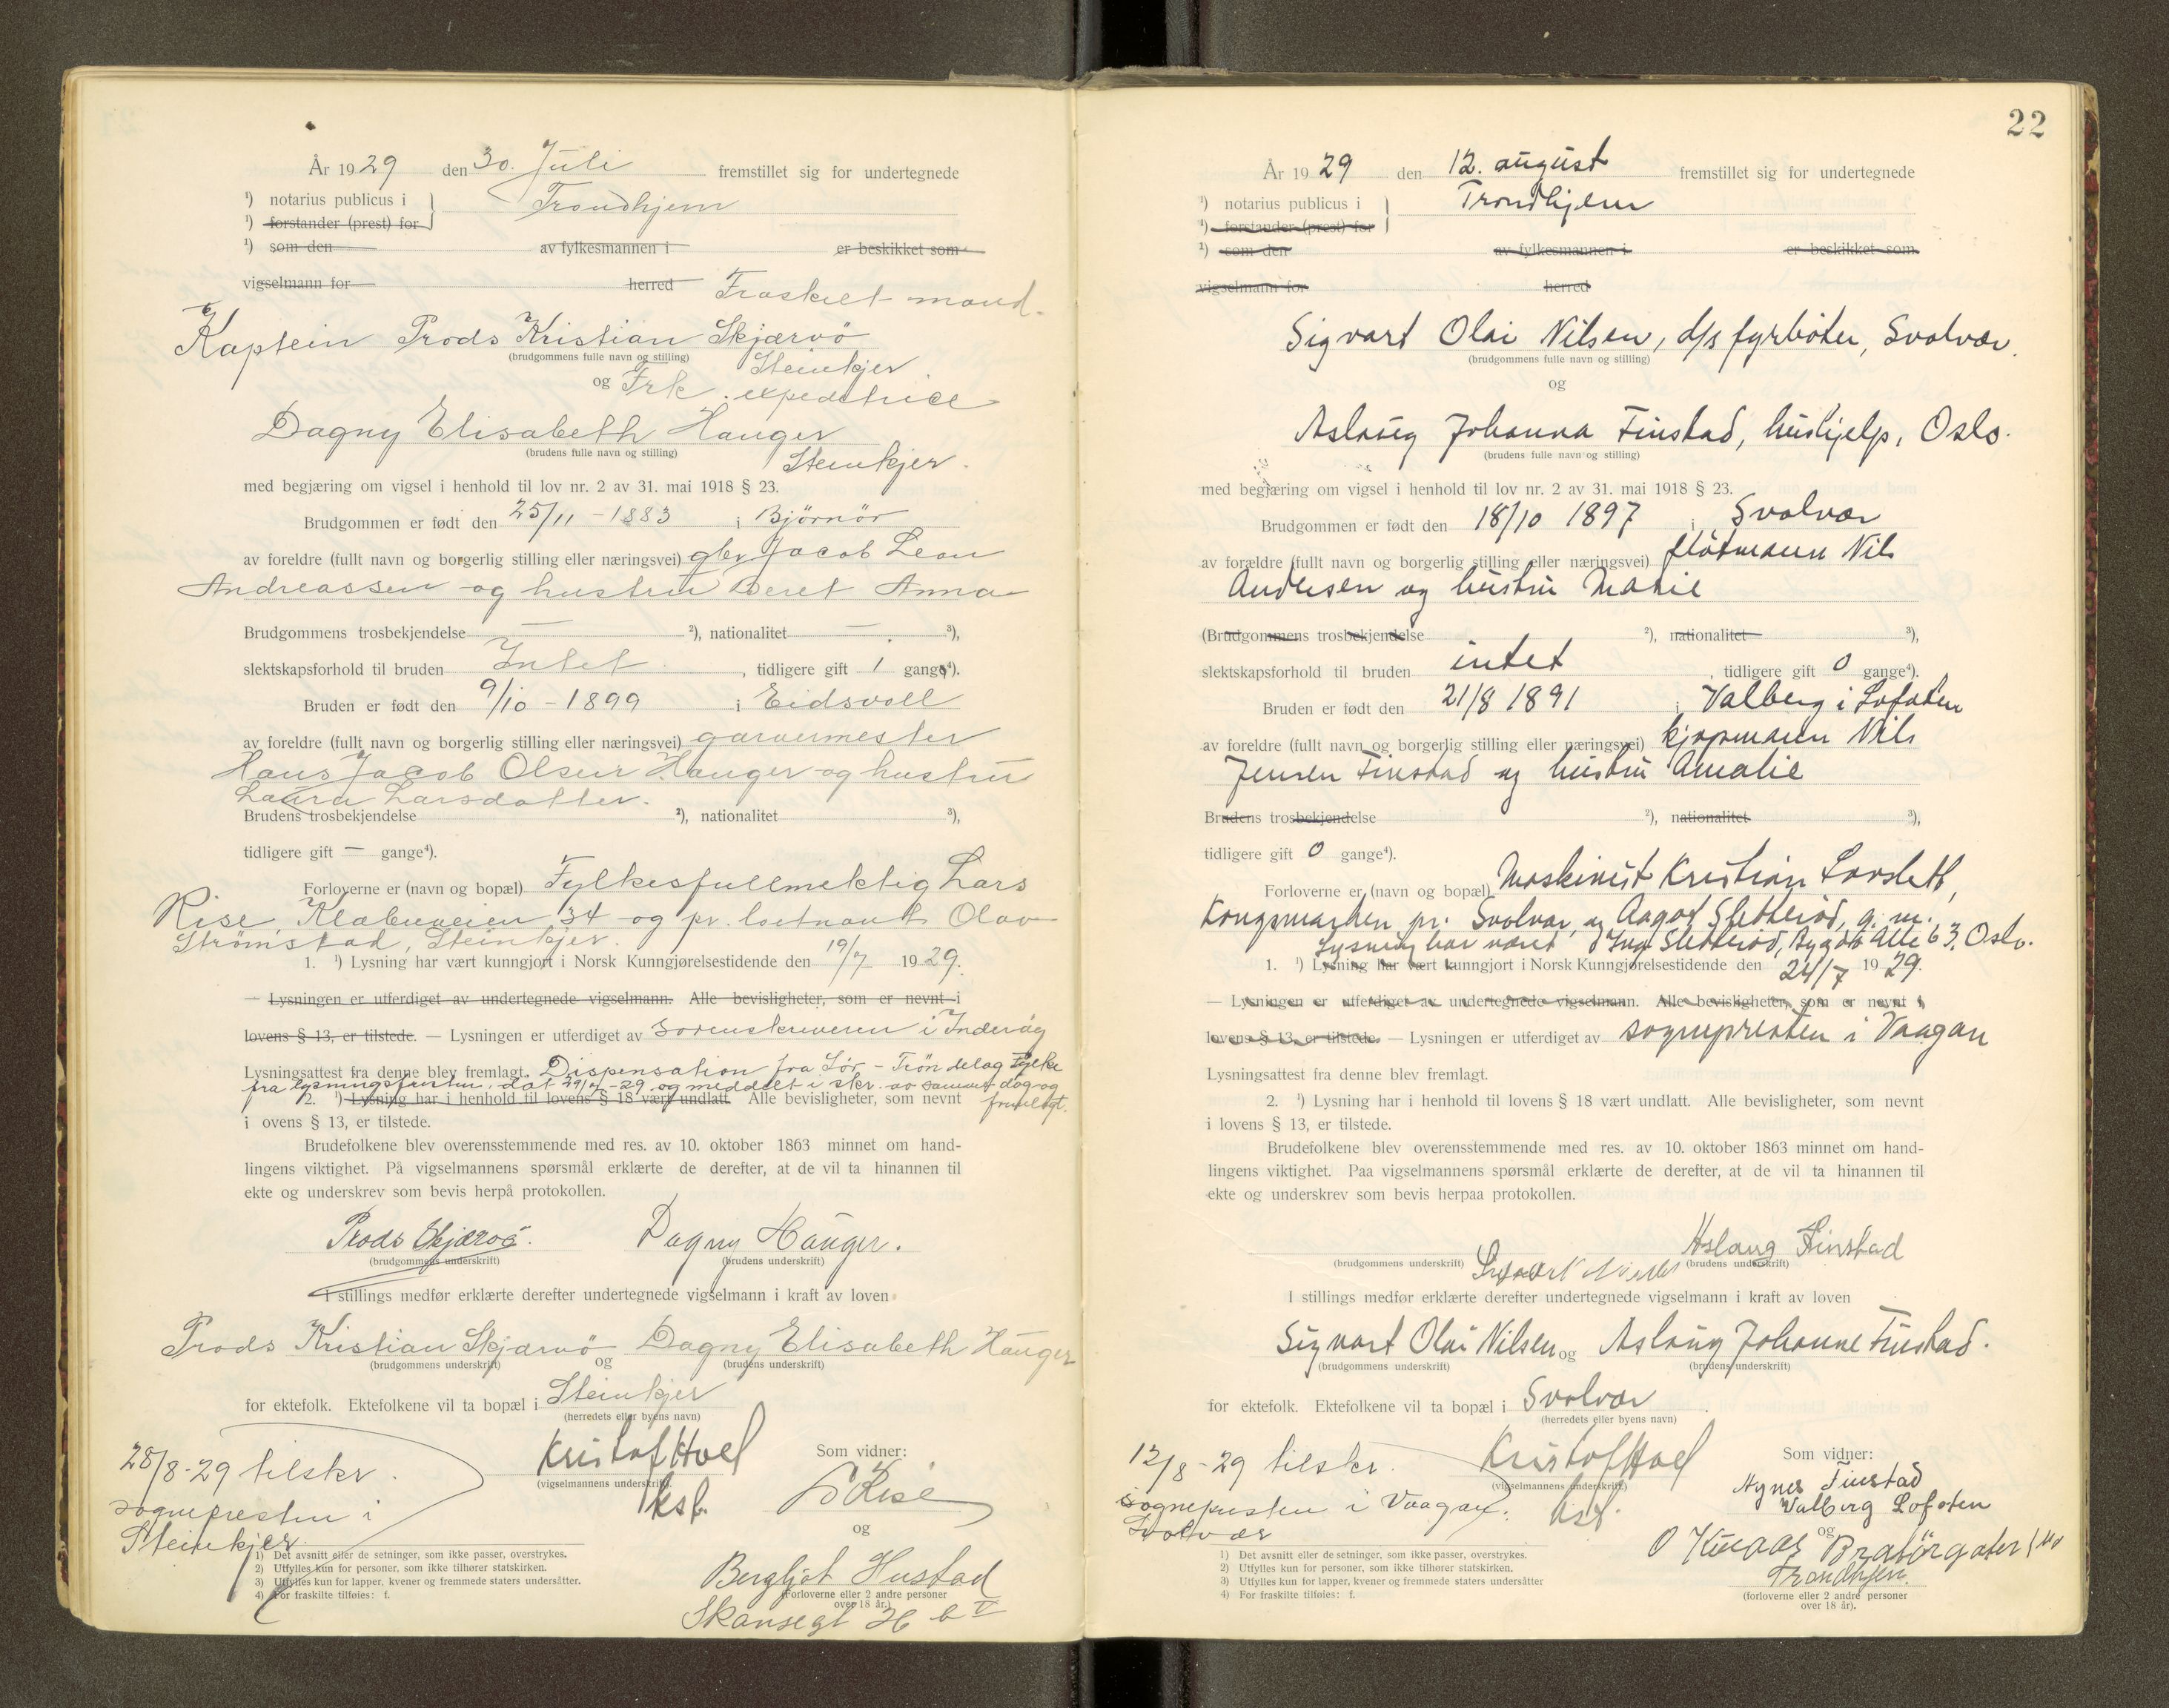 År 1929 den 30. Juli fremstillet sig for undertegnede
¹) notarius publicus i Trondhjem
¹) forstander (prest) for
¹) som den av fylkesmannen i er beskikket som
vigselmann for herred Fraskilt mand.
Kaptein Prods Kristian Skjærvö
(brudgommens fulle navn og stilling)
Steinkjer
og Frk. expeditrice
Dagny Elisabeth Hauger
(brudens fulle navn og stilling)
Steinkjer.
med begjæring om vigsel i henhold til lov nr. 2 av 31. mai 1918 § 23.
Brudgommen er født den 25/11 - 1883 i Björnör
av foreldre (fullt navn og borgerlig stilling eller næringsvei) gbr Jacob Leon
Andreassen og hustru Beret Anna
Brudgommens trosbekjendelse — ²), nationalitet — ³),
slektskapsforhold til bruden Intet, tidligere gift 1 gange⁴).
Bruden er født den 9/10 - 1899 i Eidsvoll
av foreldre (fullt navn og borgerlig stilling eller næringsvei) garvermester
Hans Jacob Olsen Hauger og hustru
Laura Larsdatter.
Brudens trosbekjendelse ²), nationalitet ³),
tidligere gift — gange⁴).
Forloverne er (navn og bopæl) Fylkesfullmektig Lars
Rise, Klæbuveien 34 og pr. løitnant Olav
Strömstad, Steinkjer.
1. ¹) Lysning har vært kunngjort i Norsk Kunngjørelsestidende den 19/7 1929.
— Lysningen er utferdiget av undertegnede vigselmann. Alle bevisligheter, som er nevnt i
lovens § 13, er tilstede. — Lysningen er utferdiget av Sorenskriveren i Inderöy
Lysningsattest fra denne blev fremlagt. Dispensation fra Sör-Tröndelag Fylke
fra lysningsfristen, dat 29/7-29 og meddelt i skr. av samme dag og
2. ¹) Lysning har i henhold til lovens § 18 vært undlatt. Alle bevisligheter, som nevnt fremlagt.
i ovens § 13, er tilstede.
Brudefolkene blev overensstemmende med res. av 10. oktober 1863 minnet om hand-
lingens viktighet. På vigselmannens spørsmål erklærte de derefter, at de vil ta hinannen til
ekte og underskrev som bevis herpå protokollen.
Prods Skjærvö. Dagny Hauger.
(brudgommens underskrift) (brudens underskrift)
I stillings medfør erklærte derefter undertegnede vigselmann i kraft av loven
Prods Kristian Skjærvö og Dagny Elisabeth Hauger
(brudgommens underskrift) (brudens underskrift)
for ektefolk. Ektefolkene vil ta bopæl i Steinkjer
(herredets eller byens navn)
Kristof Hoel Som vidner:
(vigselmannens underskrift)
ksf. L Rise
og
28/8-29 tilskr.
sognepresten i
Steinkjer
Bergljot Hustad
(Forloverne eller 2 andre personer
over 18 år.)
Skansegt 26 b V
1) Det avsnitt eller de setninger, som ikke passer, overstrykes.
2) Utfylles kun for personer, som ikke tilhører statskirken.
3) Utfylles kun for lapper, kvener og fremmede staters undersåtter.
4) For fraskilte tilføies: f.
22
År 1929 den 12. august fremstillet sig for undertegnede
¹) notarius publicus i Trondhjem
¹) forstander (prest) for
¹) som den av fylkesmannen i er beskikket som
vigselmann for herred
Sigvart Olai Nilsen, d/s fyrböter, Svolvær.
(brudgommens fulle navn og stilling)
og
Aslaug Johanna Finstad, hushjelp, Oslo.
(brudens fulle navn og stilling)
med begjæring om vigsel i henhold til lov nr. 2 av 31. mai 1918 § 23.
Brudgommen er født den 18/10 1897 i Svolvær
av forældre (fullt navn og borgerlig stilling eller næringsvei) flötmann Nils
Andersen og hustru Marie
(Brudgommens trosbekjendelse ²), nationalitet ³),
slektskapsforhold til bruden intet, tidligere gift 0 gange⁴).
Bruden er født den 21/8 1891 i Valberg i Lofoten
av foreldre (fullt navn og borgerlig stilling eller næringsvei) kjöpmann Nils
Jensen Finstad og hustru Amalie
Brudens trosbekjendelse ²), nationalitet ³),
tidligere gift 0 gange⁴).
Forloverne er (navn og bopæl) Maskinist Kristian Lorslett,
Kongsmarken pr. Svolvær, og Aagot Sletteröd, g. m.
Lysning har været d Ing. Sletteröd, Bygdö Alle 63, Oslo.
1. ¹) Lysning har vært kunngjort i Norsk Kunngjørelsestidende den 24/7 1929.
— Lysningen er utferdiget av undertegnede vigselmann. Alle bevisligheter, som er nevnt i
lovens § 13, er tilstede. — Lysningen er utferdiget av sognepresten i Vaagan
Lysningsattest fra denne blev fremlagt.
2. ¹) Lysning har i henhold til lovens § 18 vært undlatt. Alle bevisligheter, som nevnt
i lovens § 13, er tilstede.
Brudefolkene blev overensstemmende med res. av 10. oktober 1863 minnet om hand-
lingens viktighet. Paa vigselmannens spørsmål erklærte de derefter, at de vil ta hinannen til
ekte og underskrev som bevis herpaa protokollen.
Aslaug Finstad
(brudgommens underskrift) Sigvart Nilsen (brudens underskrift)
I stillings medfør erklærte derefter undertegnede vigselmann i kraft av loven
Sigvart Olai Nilsen og Aslaug Johanne Finstad.
(brudgommens underskrift) (brudens underskrift)
for ektefolk. Ektefolkene vil ta bopæl i Svolvær.
(herredets eller byens navn)
12/8-29 tilskr.
sognepresten i Vaagan.
Svolvær
Kristof Hoel Som vidner:
(vigselmannens underskrift)
ksf.
Agnes Finstad
Valberg Lofoten
og
O Knaas Bratörgaten
Trondhjem.
(forloverne eller 2 andre personer
over 18 år).
1) Det avsnitt eller de setninger, som ikke passer, overstrykes.
2) Utfylles kun for personer, som ikke tilhører statskirken.
3) Utfylles kun for lapper, kvener og fremmede staters undersåtter
4) For fraskilte tilføies: f.